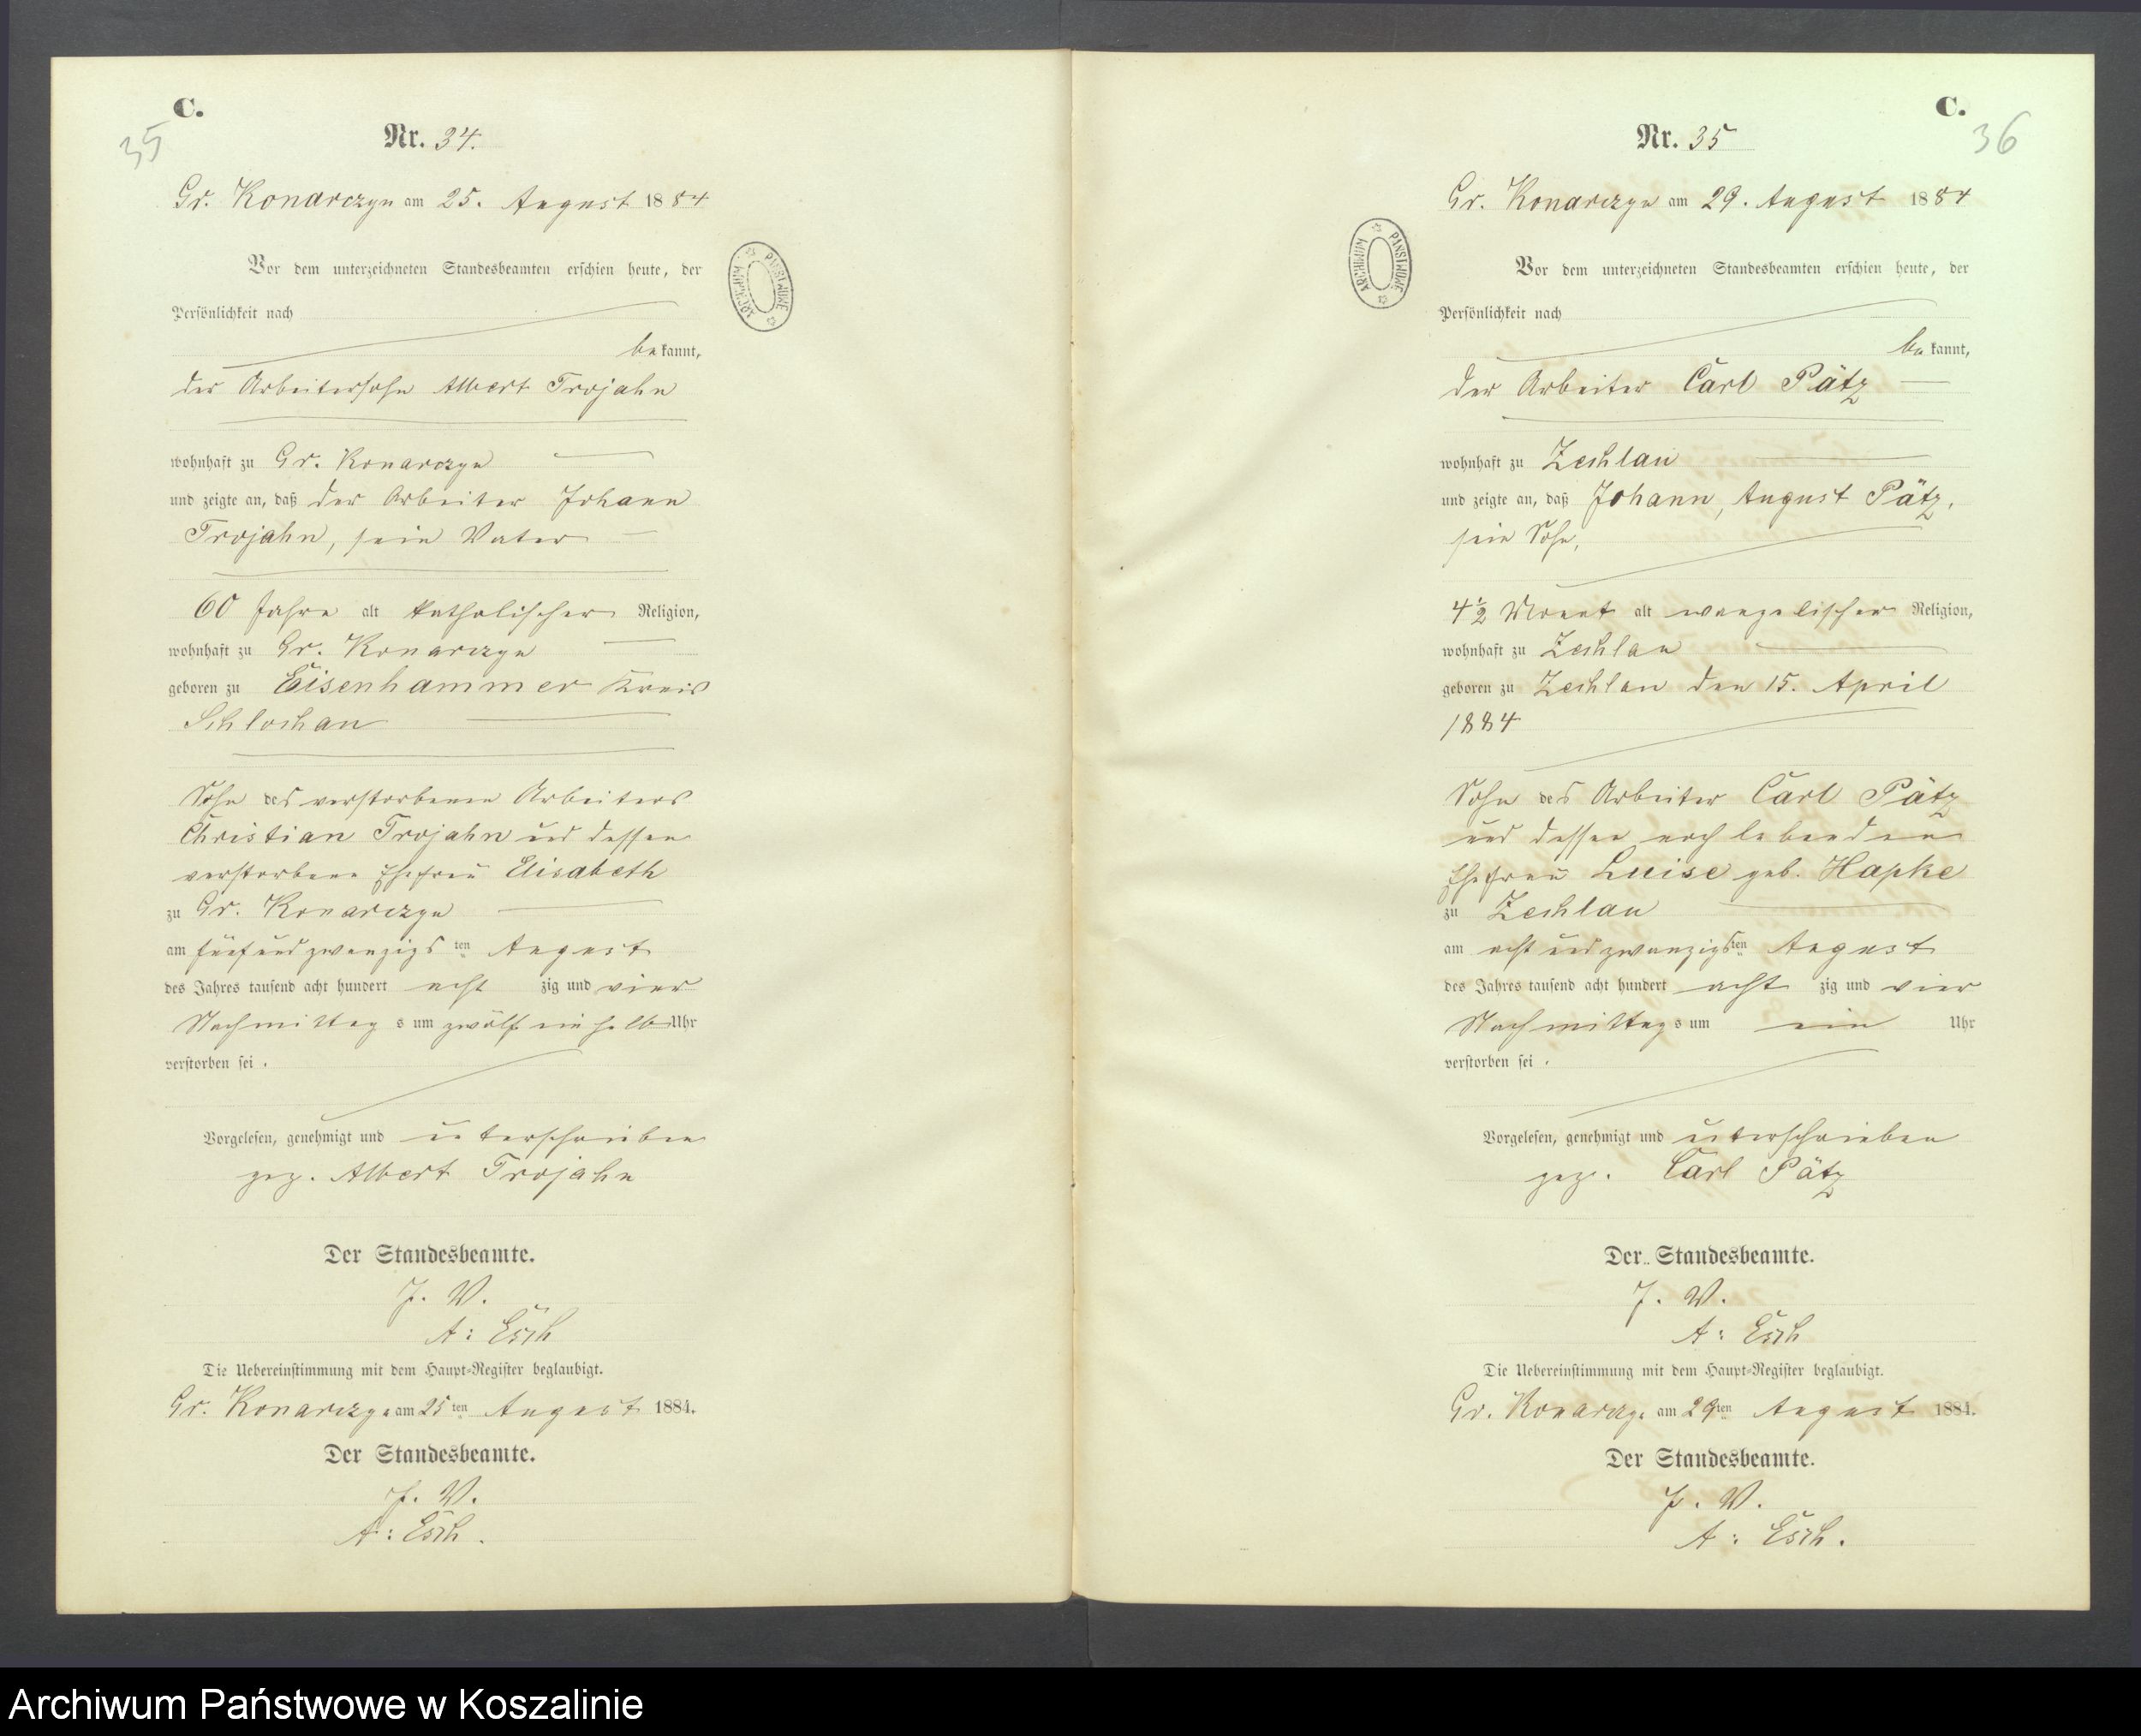 C.
35
Nr. 34.
Gr. Konarczyn am 25. August 1884
Vor dem unterzeichneten Standesbeamten erschien heute, der
Persönlichkeit nach
bekannt,
der Arbeitersohn Albert Trojahn
wohnhaft zu Gr. Konarczyn
und zeigte an, daß der Arbeiter Johann
Trojahn, sein Vater
60 Jahre alt katholischer Religion,
wohnhaft zu Gr. Konarczyn
geboren zu Eisenhammer Kreis
Schlochau
Sohn des verstorbenen Arbeiters
Christian Trojahn und dessen
verstorbene Ehefrau Elisabeth
zu Gr. Konarczyn
am fünfundzwanzigsten August
des Jahres tausend acht hundert achtzig und vier
Nachmittags um zwölf ein halb Uhr
verstorben sei.
Vorgelesen, genehmigt und unterschrieben
gez. Albert Trojahn
Der Standesbeamte.
J. V.
A: Esch
Die Uebereinstimmung mit dem Haupt-Register beglaubigt.
Gr. Konarczyn am 25ten August 1884.
Der Standesbeamte.
J. V.
A: Esch.
ARCHIWUM PAŃSTWOWE
C.
36
Nr. 35
Gr. Konarczyn am 29. August 1884
Vor dem unterzeichneten Standesbeamten erschien heute, der
Persönlichkeit nach
bekannt,
der Arbeiter Carl Pätz
wohnhaft zu Zechlau
und zeigte an, daß Johann, August Pätz,
sein Sohn,
4½ Monat alt evangelischer Religion,
wohnhaft zu Zechlau
geboren zu Zechlau den 15. April
1884
Sohn des Arbeiter Carl Pätz
und dessen noch lebenden
Ehefrau Luise geb. Hapke
zu Zechlau
am acht und zwanzigsten August
des Jahres tausend acht hundert achtzig und vier
Nachmittags um ein Uhr
verstorben sei.
Vorgelesen, genehmigt und unterschrieben
gez. Carl Pätz
Der Standesbeamte.
J. V.
A: Esch
Die Uebereinstimmung mit dem Haupt-Register beglaubigt.
Gr. Konarczyn am 29ten August 1884.
Der Standesbeamte.
J. V.
A: Esch.
ARCHIWUM PAŃSTWOWE
Archiwum Państwowe w Koszalinie